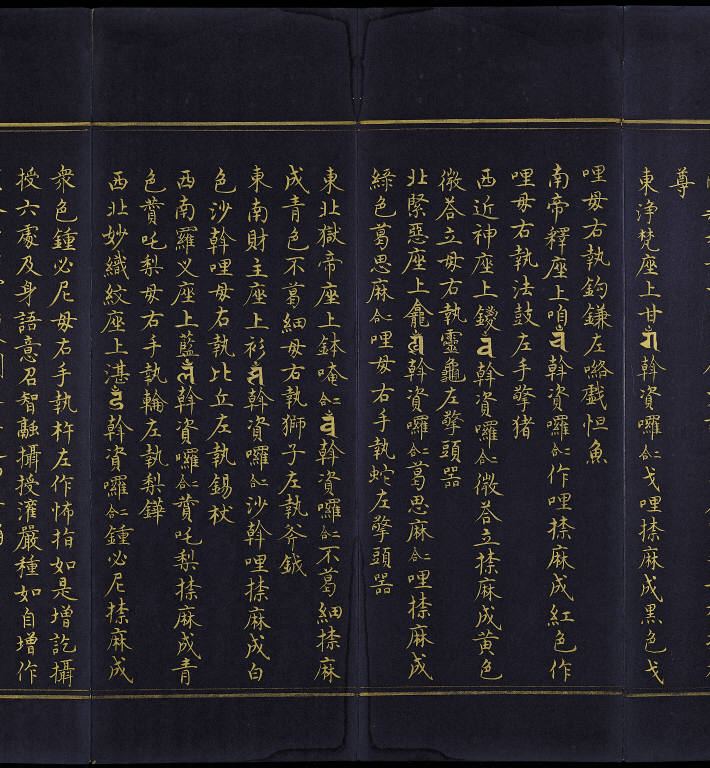 尊
東淨梵座上甘 幹資囉合二戈哩捺麻成黑色戈
哩毋右執鈎鎌左嚕戲怛魚
南帝釋座上咱 幹資囉合二作哩捺麻成紅色作
哩毋右執法鼓左手擎猪
西近神座上鑁 幹資囉合二微荅立捺麻成黄色
微荅立毋右執靈龜左擎頭器
北緊惡座上龕 幹資囉合二葛思麻合二哩捺麻成
緑色葛思麻合二哩毋右手執蛇左擎頭器
東北獄帝座上鉢唵合二 幹資囉合二不葛細捺麻
成青色不葛細毋右執獅子左執斧鉞
東南財主座上衫 幹資囉合二沙幹哩捺麻成白
色沙幹哩毋右執比丘左執錫杖
西南羅义座上藍 幹資囉合二賛吒梨捺麻成青
色賛吒梨毋右手執輪左執梨鏵
西北妙織紋座上湛 幹資囉合二鍾必尼捺麻成
衆色鍾必尼毋右手執杵左作怖指如是增訖攝
授六處及身語意召智融攝授灌嚴種如自增作